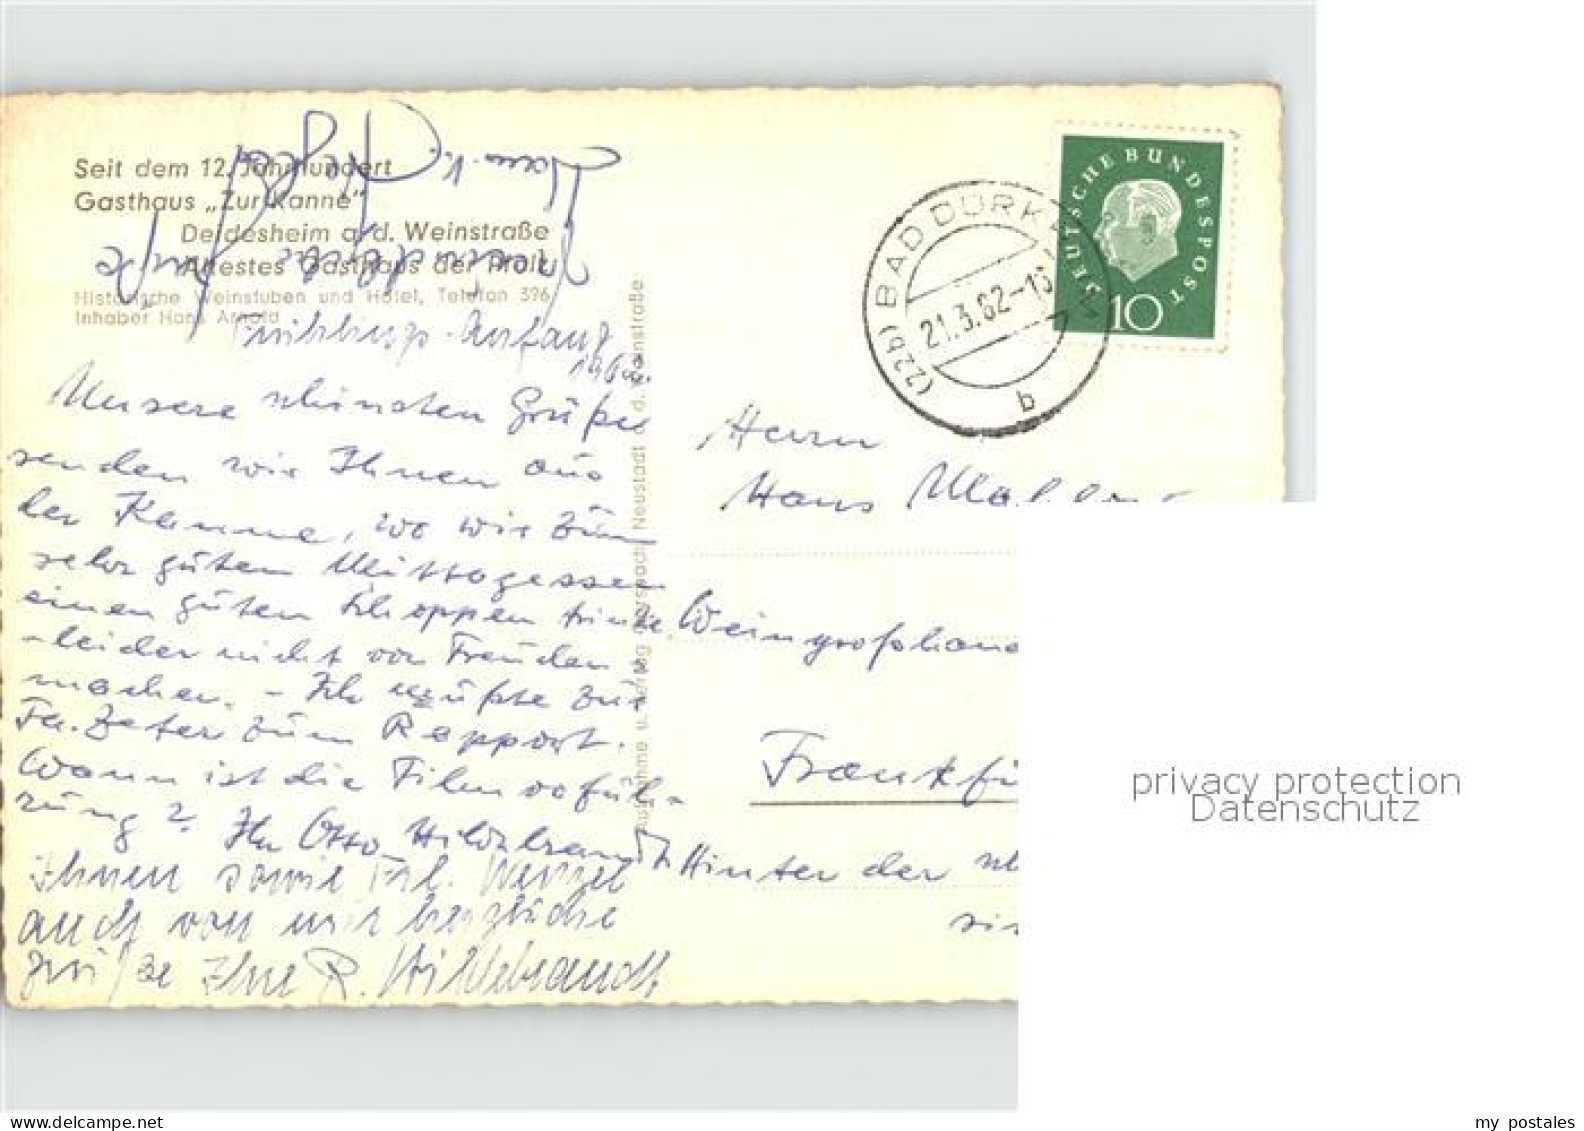 Seit dem 12. Jahrhundert
Gasthaus „Zur Kanne"
Deidesheim a/d. Weinstraße
Ältestes Gasthaus der Pfalz
Historische Weinstuben und Hotel, Telefon 396
Inhaber Hans Arnold
Frühlings-Anfang
1962.
Unsere schönsten Grüße
senden wir Ihnen aus
der Kanne, wo wir zum
sehr guten Mittagessen
einen guten Schoppen trinke
- leider nicht von Freuden
machen. - Ich mußte zur
Fa. Zeter zum Rapport.
Wann ist die Filmvofüh-
rung? Ihr Otto Hildebrandt
Ihnen sowie Frl. Wenzel
auch von mir herzliche
Grüße Ihre R. Hildebrandt
Aufnahme u. Verlag Neustadt a. d. Weinstraße
DEUTSCHE BUNDESPOST
10
(22b) BAD DÜRK
21.3.62-18
b
Herrn
Hans
Weingroßhand
Frankfu
Hinter der
privacy protection
Datenschutz
my postales